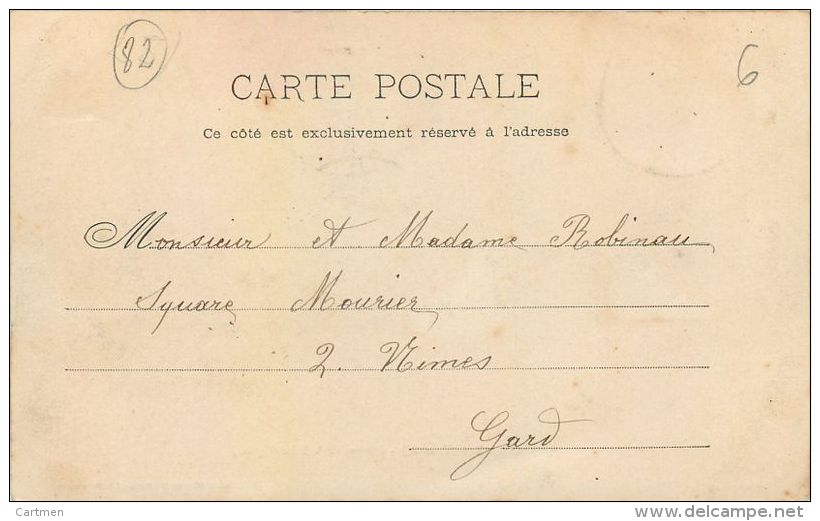 82
6
CARTE POSTALE
Ce côté est exclusivement réservé à l'adresse
Monsieur et Madame Robinau
Square Mourier
2. Nimes
Gard
Cartmen
delcampe.net